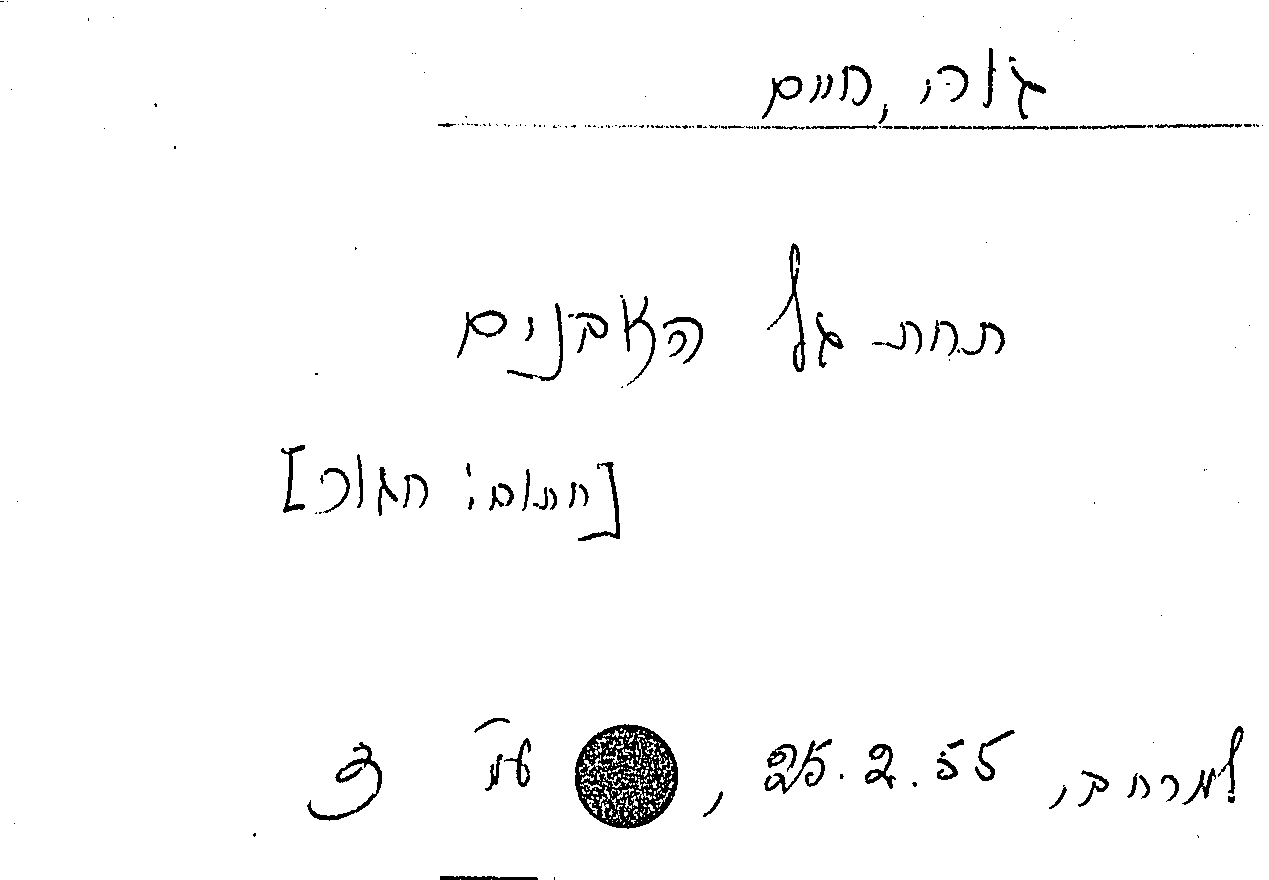 גורי, חיים
תחת גל האבנים
[חתום: חגור]
למרחב, 25.2.55, עמ' 3